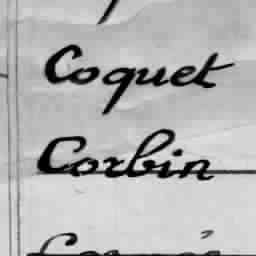 Coquet
Corbin